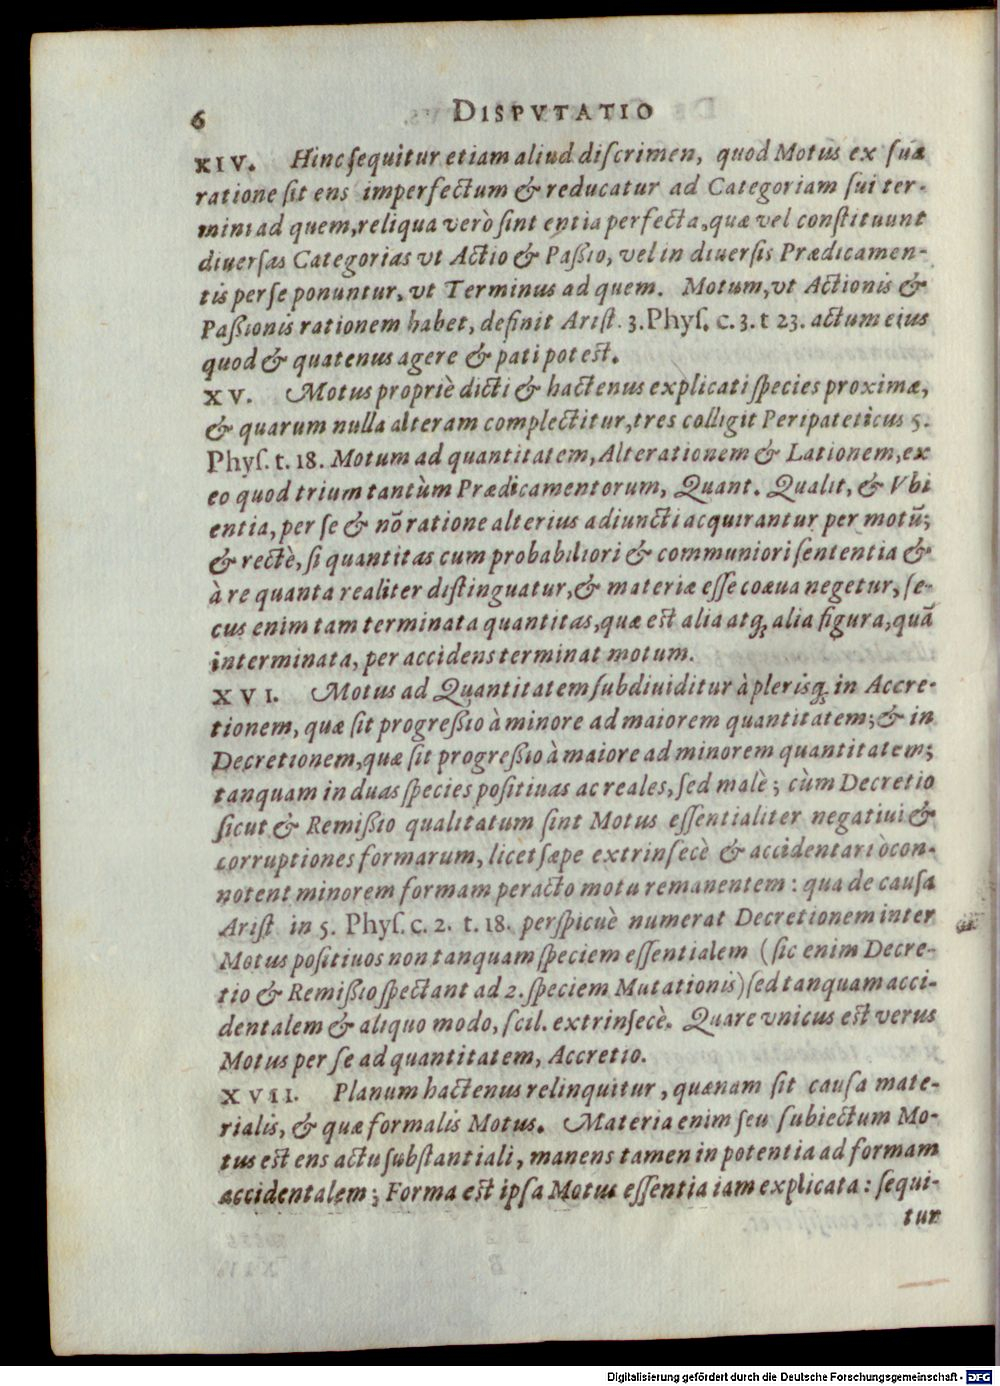 6 DISPVTATIO
XIV. Hinc sequitur etiam aliud discrimen, quod Motus ex sua
ratione sit ens imperfectum & reducatur ad Categoriam sui ter-
mini ad quem, reliqua verò sint entia perfecta, quæ vel constituunt
diuersas Categorias vt Actio & Paßio, vel in diuersis Prædicamen-
tis per se ponuntur, vt Terminus ad quem. Motum, vt Actionis &
Paßionis rationem habet, definit Arist. 3. Phys. c. 3. t 23. actum eius
quod & quatenus agere & pati potest.
XV. Motus propriè dicti & hactenus explicati species proximæ,
& quarum nulla alteram complectitur, tres colligit Peripateticus 5.
Phys. t. 18. Motum ad quantitatem, Alterationem & Lationem, ex
eo quod trium tantùm Prædicamentorum, Quant. Qualit, & Vbi
entia, per se & nõ ratione alterius adiuncti acquirantur per motũ;
& rectè, si quantitas cum probabiliori & communiori sententia &
à re quanta realiter distinguatur, & materiæ esse coæua negetur, se-
cus enim tam terminata quantitas, quæ est alia atq; alia figura, quã
interminata, per accidens terminat motum.
XVI. Motus ad Quantitatem subdiuiditur à plerisq; in Accre-
tionem, quæ sit progreßio à minore ad maiorem quantitatem; & in
Decretionem, quæ sit progreßio à maiore ad minorem quantitatem;
tanquam in duas species positiuas ac reales, sed malè; cùm Decretio
sicut & Remißio qualitatum sint Motus essentialiter negatiui &
corruptiones formarum, licet sæpe extrinsecè & accidentariò con-
notent minorem formam peracto motu remanentem: qua de causa
Arist in 5. Phys. c. 2. t. 18. perspicuè numerat Decretionem inter
Motus positiuos non tanquam speciem essentialem (sic enim Decre-
tio & Remißio spectant ad 2. speciem Mutationis) sed tanquam acci-
dentalem & aliquo modo, scil. extrinsecè. Quare vnicus est verus
Motus per se ad quantitatem, Accretio.
XVII. Planum hactenus relinquitur, quænam sit causa mate-
rialis, & quæ formalis Motus. Materia enim seu subiectum Mo-
tus est ens actu substantiali, manens tamen in potentia ad formam
accidentalem; Forma est ipsa Motus essentia iam explicata: sequi-
tur
Digitalisierung gefördert durch die Deutsche Forschungsgemeinschaft - DFG